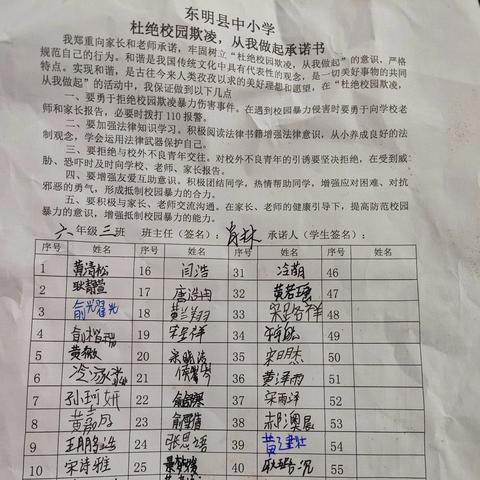 东明县中小学
杜绝校园欺凌，从我做起承诺书
我郑重向家长和老师承诺，牢固树立“杜绝校园欺凌，从我做起”的意识，严格
规范自己的行为。和谐是我国传统文化中具有代表性的观念，是一切美好事物的共同
特点。实现和谐，是古往今来人类孜孜以求的美好理想和愿望，在“杜绝校园欺凌，
从我做起”的活动中，我保证做到以下几点
一、要勇于拒绝校园欺凌暴力伤害事件。在遇到校园暴力侵害时要勇于向学校老
师和家长报告，必要时拨打110报警。
二、要加强法律知识学习。积极阅读法律书籍增强法律意识，从小养成良好的法
制观念，学会运用法律武器保护自己。
三、要拒绝与校外不良青年交往。对校外不良青年的引诱要坚决拒绝，在受到威
胁、恐吓时及时向学校、老师、家长报告。
四、要增强友爱互助意识。积极团结同学，热情帮助同学，增强应对困难、对抗
邪恶的勇气，形成抵制校园暴力的合力。
五、要积极与家长、老师交流沟通。在家长、老师的健康引导下，提高防范校园
暴力的意识，增强抵制校园暴力的能力。
六年级三班 班主任（签名）： 承诺人（学生签名）：
序号 姓名 序号 姓名 序号 姓名 序号 姓名
1 黄清松 16 闫浩 31 冷萌 46
2 耿静萱 17 32 47
3 18 黄兰翔 33 48
4 19 34 49
5 黄薇 20 宋晓凌 35 50
6 21 36 黄泽雨 51
7 孙珂妍 22 37 宋雨泽 52
8 23 38 郝奥晨 53
9 24 张思语 39 54
10 宋诗雅 25 40 55